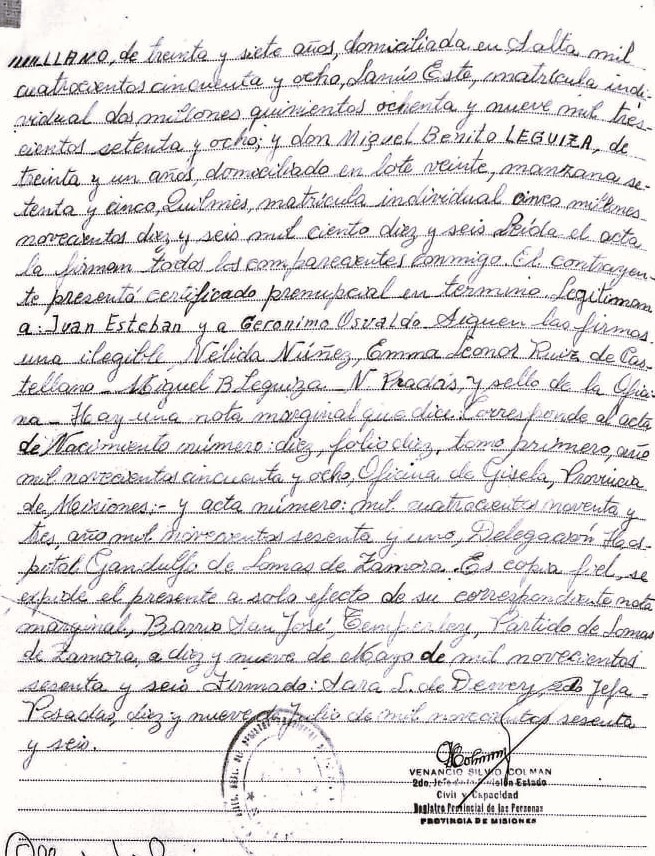 de treinta y siete años, domiciliada en Salta mil
cuatrocientos cincuenta y ocho, Lanús Este, matrícula indi-
vidual dos millones quinientos ochenta y nueve mil tres-
cientos setenta y ocho; y don Miguel Benito LEGUIZA, de
treinta y un años, domiciliado en lote veinte, manzana se-
tenta y cinco, Quilmes, matrícula individual cinco millones
novecientos diez y seis mil ciento diez y seis Leída el acta
la firman todos los comparecientes conmigo. El contrayen-
te presentó certificado prenupcial en término Legitiman
a: Juan Esteban y a Geronimo Osvaldo Siguen las firmas
una ilegible, Nélida Núñez, Emma Leonor Ruiz de Cas-
tellano - Miguel B. Leguiza - N Pradás, y sello de la Ofici-
na - Hay una nota marginal que dice: Corresponde al acta
de Nacimiento número: diez, folio diez, tomo primero, año
mil novecientos cincuenta y ocho, Oficina de Gisela, Provincia
de Misiones;- y acta número: mil cuatrocientos noventa y
tres, año mil novecientos sesenta y uno, Delegación Hos-
pital Gandulfo de Lomas de Zamora. Es copia fiel, se
expide el presente a solo efecto de su correspondiente nota
marginal, Barrio San José, Temperley, Partido de Lomas
de Zamora, a diez y nueve de Mayo de mil novecientos
sesenta y seis Firmado: Sara S. de Dewey Jefa-
Posadas, diez y nueve de Julio de mil novecientos sesenta
y seis.
VENANCIO SILVIO COLMAN
2do. Jefe de la División Estado
Civil y Capacidad
Registro Provincial de las Personas
PROVINCIA DE MISIONES